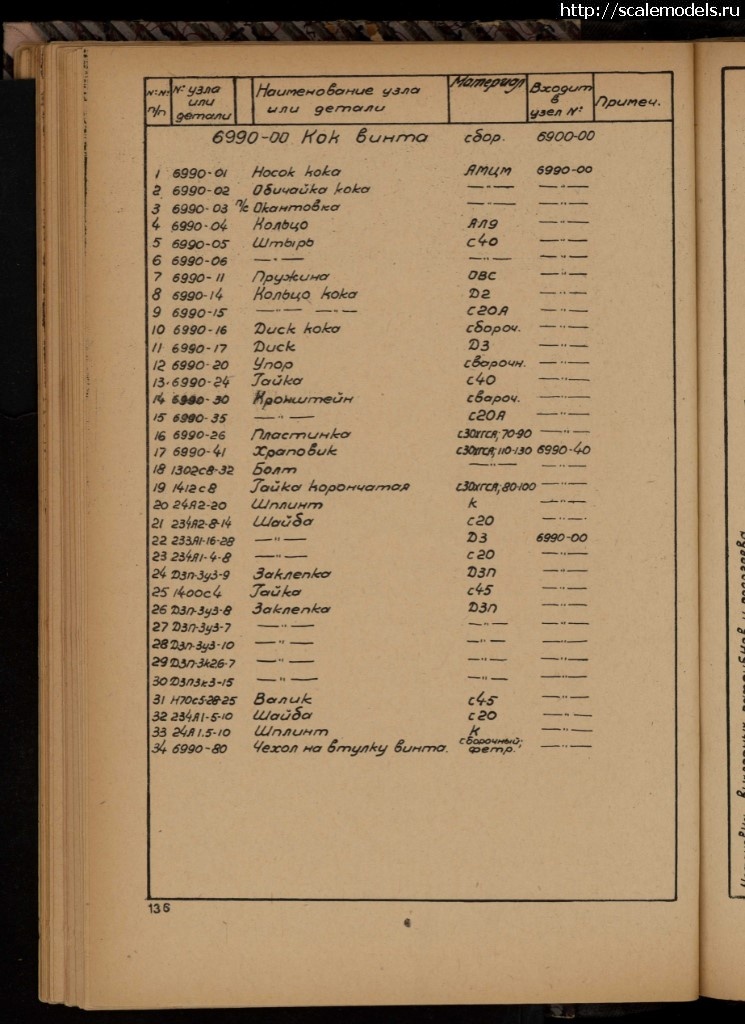 http://scalemodels.ru
№№ п/п № узла или детали Наименование узла или детали Материал Входит в узел №: Примеч.
6990-00 Кок винта сбор. 6900-00
1 6990-01 Носок кока АМЦМ 6990-00
2 6990-02 Обичайка кока —"— —"—
3 6990-03 п/с Окантовка —"— —"—
4 6990-04 Кольцо АЛ9 —"—
5 6990-05 Штырь с40 —"—
6 6990-06 —"— —"— —"—
7 6990-11 Пружина ОВС —"—
8 6990-14 Кольцо кока Д2 —"—
9 6990-15 —"— —"— с20А —"—
10 6990-16 Диск кока сбороч. —"—
11 6990-17 Диск Д3 —"—
12 6990-20 Упор сварочн. —"—
13 6990-24 Гайка с40 —"—
14 6990-30 Кронштейн свароч. —"—
15 6990-35 —"— с20А —"—
16 6990-26 Пластинка с30хгсА; 70-90 —"—
17 6990-41 Храповик с30хгсА; 110-130 6990-40
18 1302с8-32 Болт —"— —"—
19 1412с8 Гайка корончатая с30хгсА; 80-100 —"—
20 24А2-20 Шплинт К —"—
21 234А2-8-14 Шайба с20 —"—
22 233А1-16-28 —"— Д3 6990-00
23 234А1-4-8 —"— с20 —"—
24 Д3п-3у3-9 Заклепка Д3п —"—
25 1400с4 Гайка с45 —"—
26 Д3п-3у3-8 Заклепка Д3п —"—
27 Д3п-3у3-7 —"— —"— —"—
28 Д3п-3у3-10 —"— —"— —"—
29 Д3п-3к26-7 —"— —"— —"—
30 Д3п3к3-15 —"— —"— —"—
31 Н70с5-28-25 Валик с45 —"—
32 234А1-5-10 Шайба с20 —"—
33 24А1.5-10 Шплинт К —"—
34 6990-80 Чехол на втулку винта. сборочный; фетр. —"—
136